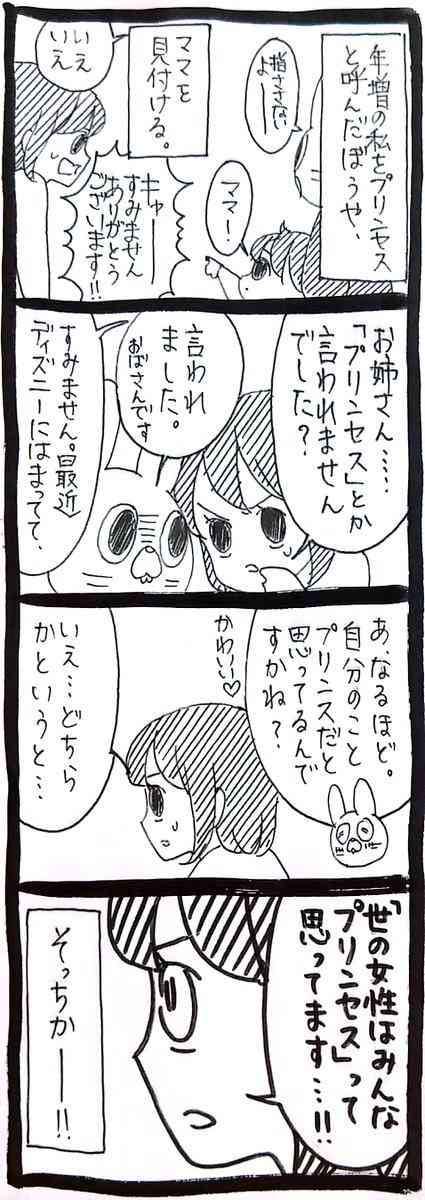 年増の私をプリンセス
と呼んだぼうや、
指ささない
よーー
ママー!
ママを
見付ける。
キャーー
すみません
ありがとう
ございます!!
いえ
いえ
お姉さん……
「プリンセス」とか
言われません
でした?
言われ
ました。
おばさんです
すみません。最近
ディズニーにはまってて、
あ、なるほど。
自分のこと
プリンスだと
思ってるんで
すかね?
かわいい♡
いえ…どちら
かというと…
「世の女性はみんな
プリンセス」って
思ってます…!!
そっちかーー!!